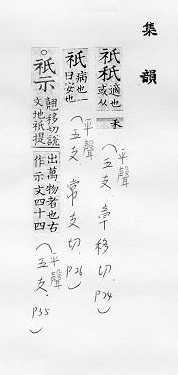 集韻
祇秖 適也或从禾
（平聲 五支 章移切. P.24）
祇 病也一曰安也
（平聲 五支 常支切. P.26）
○祇示 翹移切說文地祇提出萬物者也古作示文四十四
（平聲 五支. P.35）